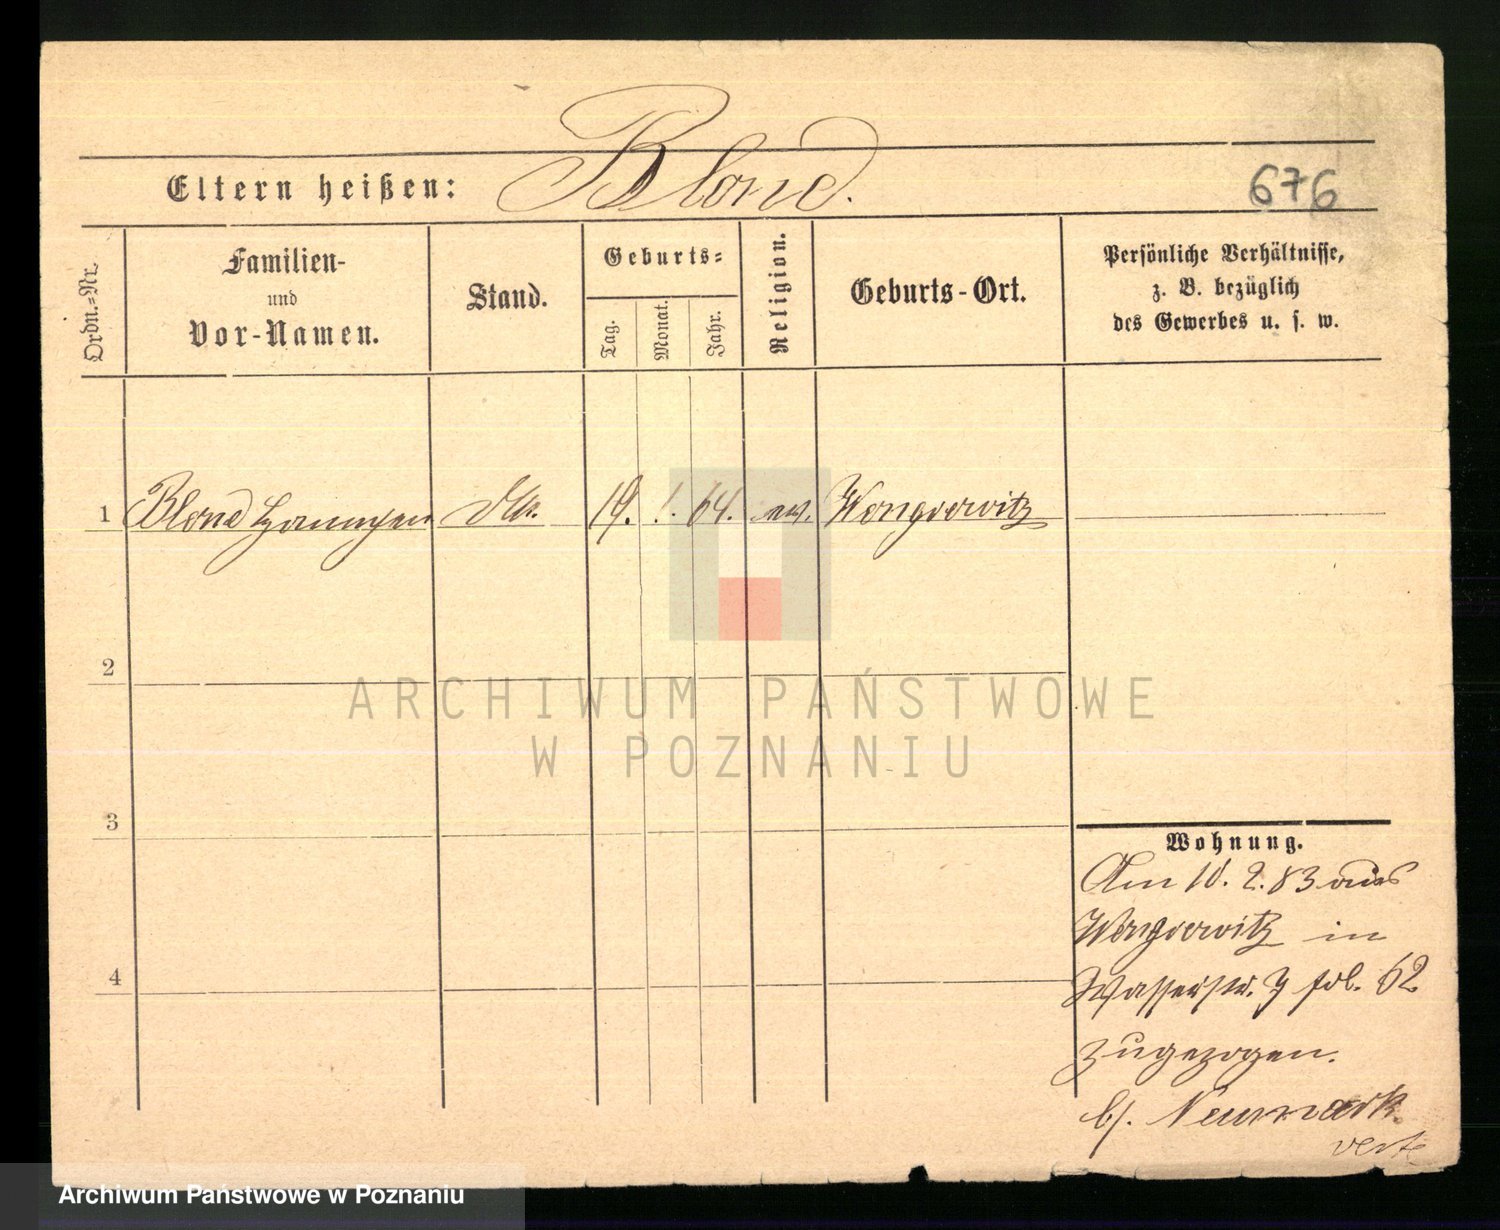 Blond.
Eltern heißen:
676
Ordn.=Nr.
Familien-
und
Vor-Namen.
Stand.
Geburts=
Tag.
Monat.
Jahr.
Religion.
Geburts-Ort.
Persönliche Verhältnisse,
z. B. bezüglich
des Gewerbes u. s. w.
1 Blond 19. 1. 64. ev. Wongrowitz
2
3
4
Wohnung.
Am 10. 2. 83 aus
Wongrowitz in
Wasserstr. 7 fol. 62
zugezogen.
b/. Neumark.
verte
ARCHIWUM PAŃSTWOWE
W POZNANIU
Archiwum Państwowe w Poznaniu